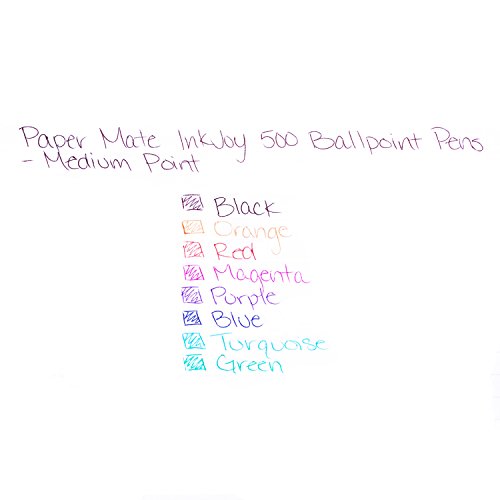 Paper Mate InkJoy 500 Ballpoint Pens
- Medium Point
Black
Orange
Red
Magenta
Purple
Blue
Turquoise
Green